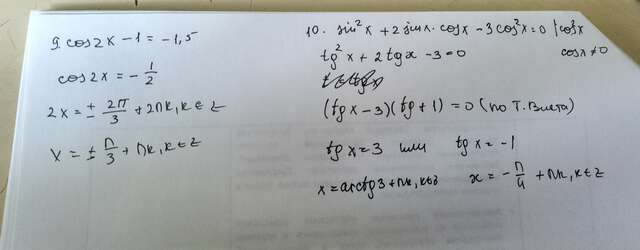 9. cos2x - 1 = -1,5
cos2x = - 1/2
2x = ± 2π/3 + 2πk, k ∈ Z
x = ± π/3 + πk, k ∈ Z
10. sin²x + 2 sinx · cosx - 3 cos²x = 0 | cos²x
tg²x + 2 tgx - 3 = 0 cosx ≠ 0
(tgx - 3)(tg + 1) = 0 (по т. Виета)
tgx = 3 или tgx = -1
x = arctg3 + πk, k ∈ Z x = - π/4 + πk, k ∈ Z